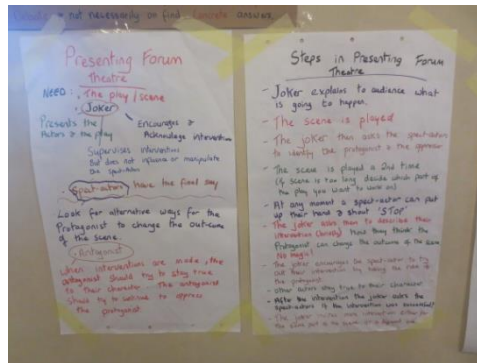 not necessarily on find concrete answer.
Presenting Forum
Theatre
NEED: • The play / scene
• Joker
Presents the
Actors & the play
Encourages &
Acknowledge interventions
Supervises interventions
But does not influence or manipulate
the spect-actors
• Spect-actors have the final say
Look for alternative ways for the
Protagonist to change the outcome
of the scene.
• Antagonist
When interventions are made, the
antagonist should try to stay true
to their character. The antagonist
should try to continue to oppress
the protagonist
Steps in Presenting Forum
Theatre
- Joker explains to audience what
is going to happen.
- The scene is played
- The joker then asks the spect-actors
to identify the protagonist & the oppressor
- The scene is played a 2nd time
(if scene is too long, decide which part of
the play you want to work on)
- At any moment a spect-actor can put
up their hand & shout 'STOP'
- The joker asks them to describe their
intervention (briefly) How they think the
Protagonist can change the outcome of the scene
No magic!
- The joker encourages the spect-actor to try
out their intervention by taking the role of
the protagonist.
- Other actors stay true to their character
- After the intervention the joker asks the
spect-actors if the intervention was successful?
- The joker invites more intervention either for
the same part of the scene or a different one